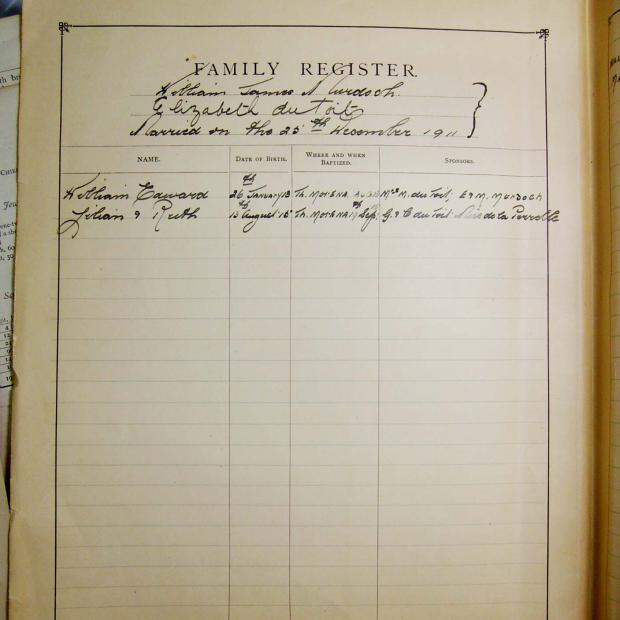 FAMILY REGISTER.
William James Murdoch.
Elizabeth du Toit
Married on the 25th December 1911
NAME. DATE OF BIRTH. WHERE AND WHEN BAPTIZED. SPONSORS.
William Edward 26th January 13 Th. Morena Aug 13 Mrs M. du Toit, E & M. Murdoch
Lilian & Ruth 13th August 15 Th. Morena 19th Sep. G & C du Toit